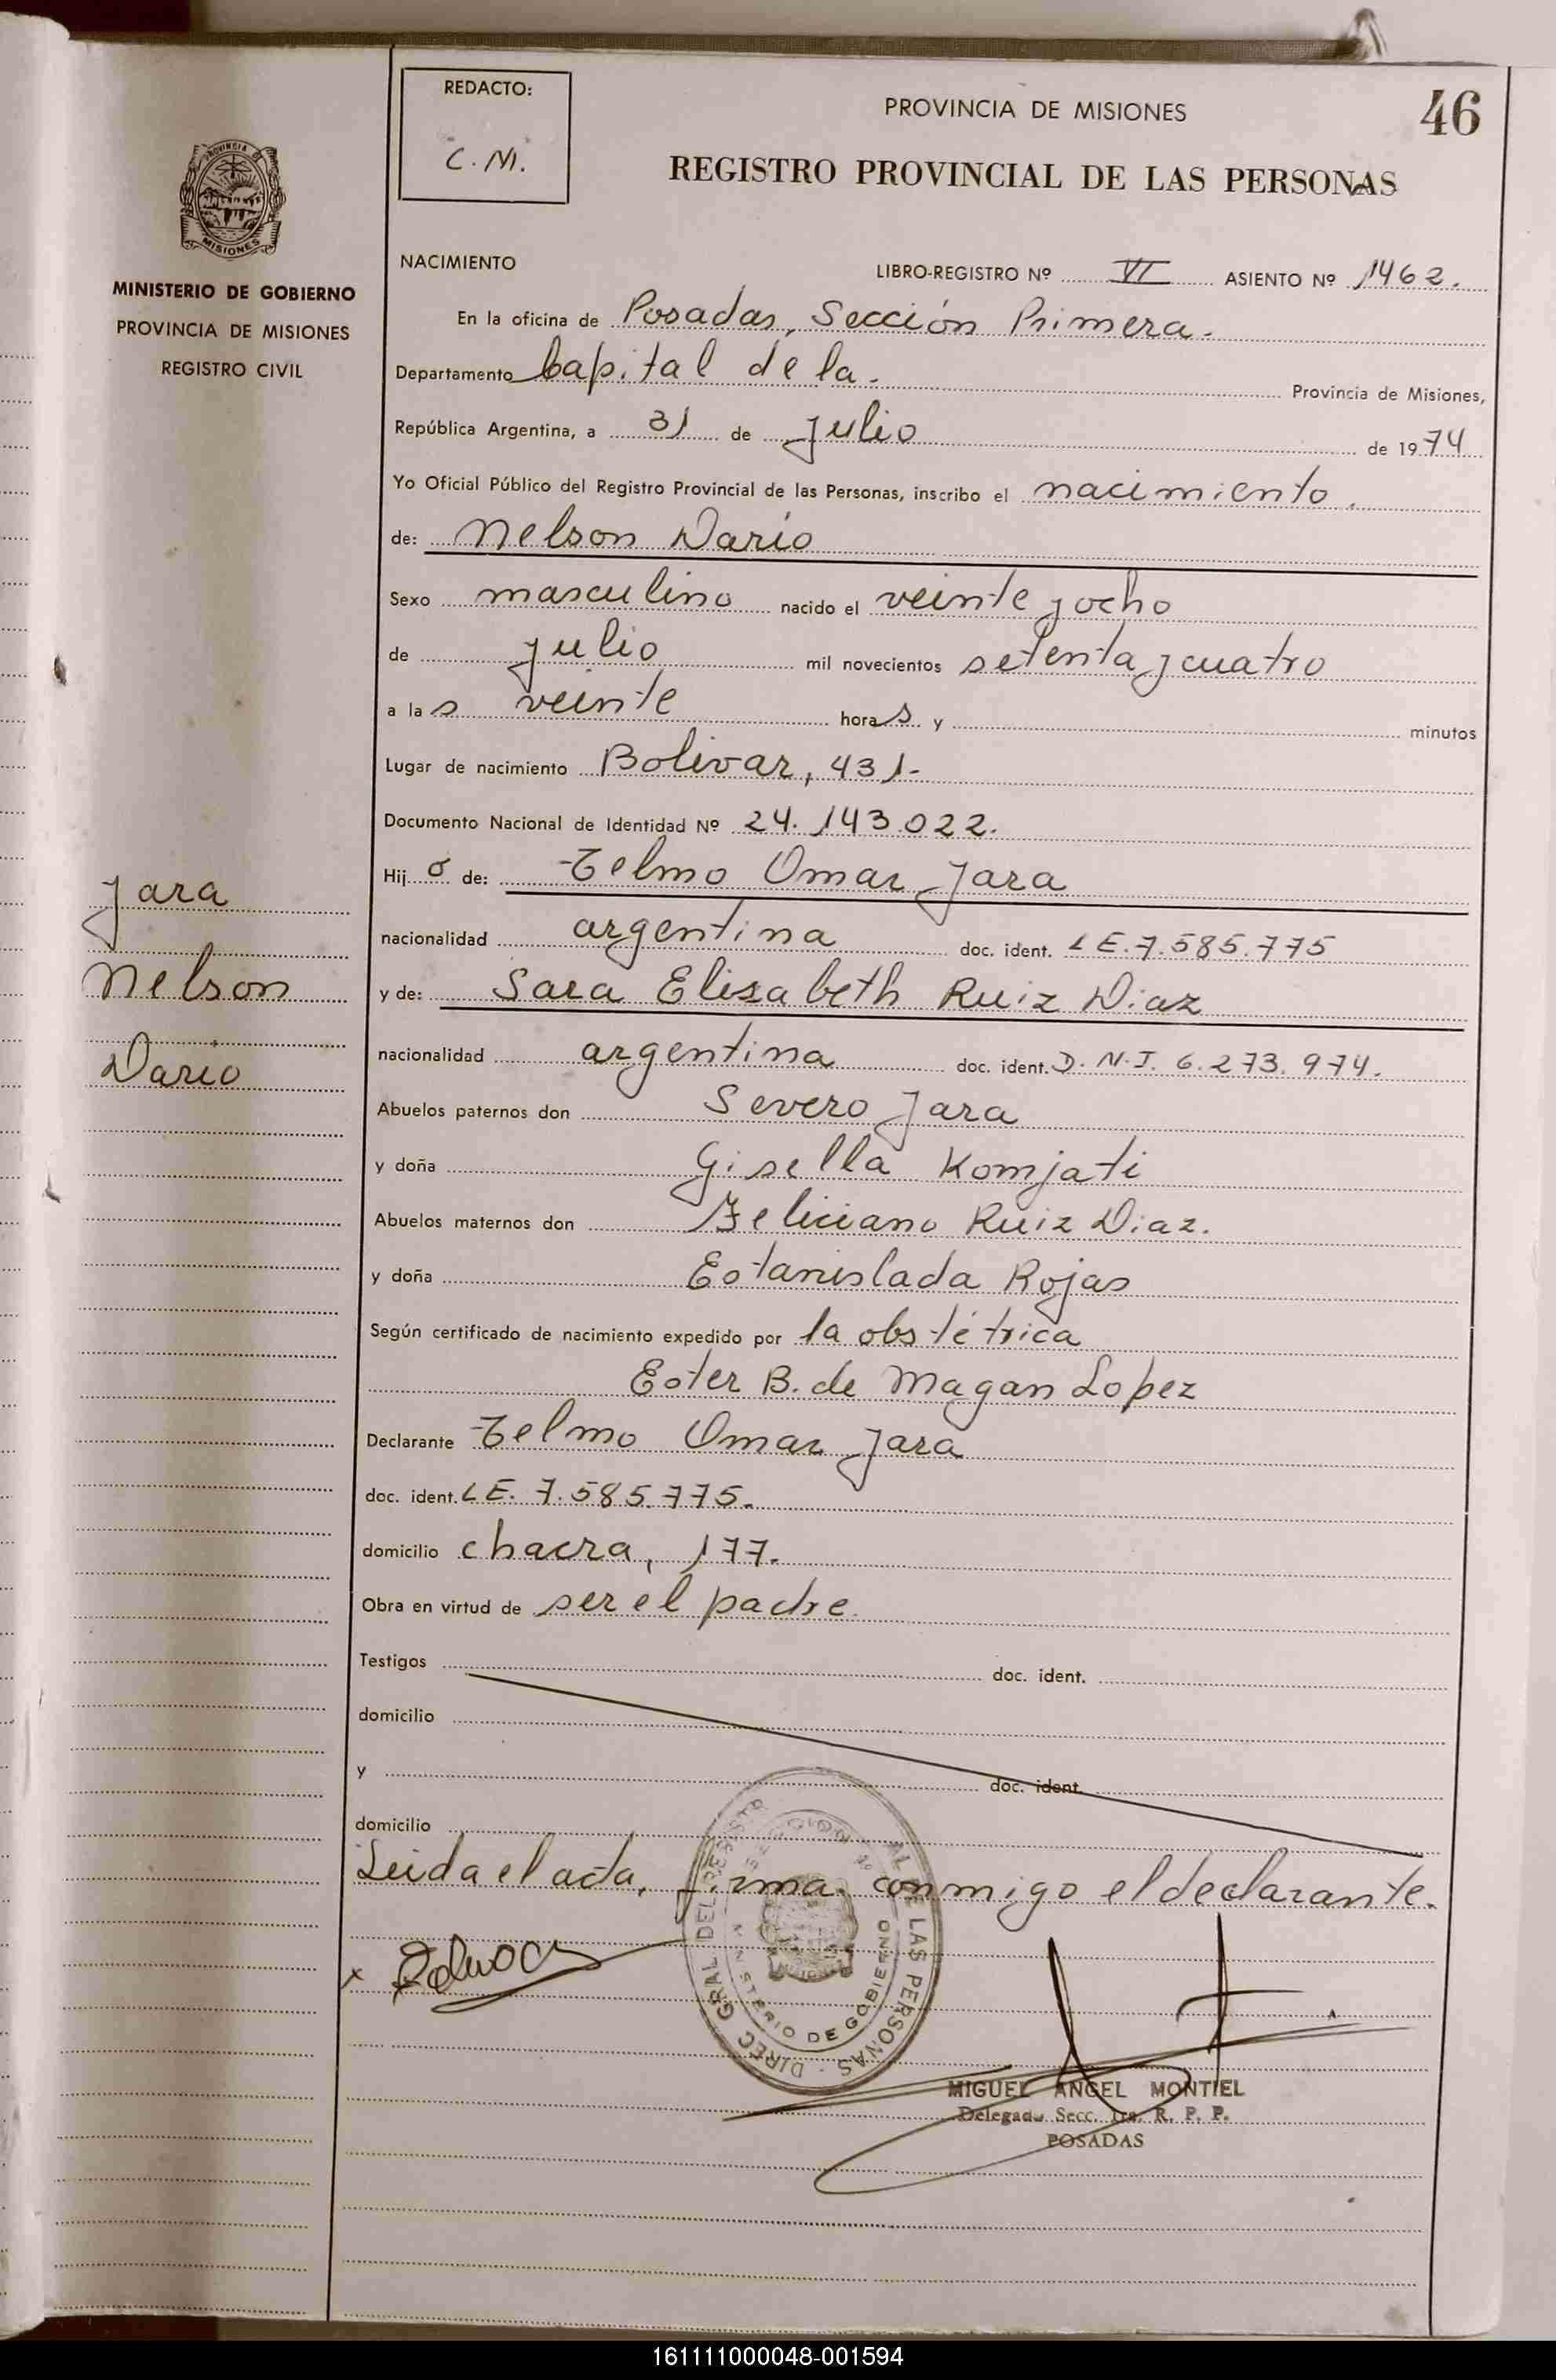 REDACTO:
C.M.
PROVINCIA DE MISIONES
46
REGISTRO PROVINCIAL DE LAS PERSONAS
PROVINCIA DE
MISIONES
MINISTERIO DE GOBIERNO
PROVINCIA DE MISIONES
REGISTRO CIVIL
NACIMIENTO
LIBRO-REGISTRO Nº VI ASIENTO Nº 1462.
En la oficina de Posadas, Sección Primera.
Departamento Capital de la. Provincia de Misiones,
República Argentina, a 31 de Julio de 1974
Yo Oficial Público del Registro Provincial de las Personas, inscribo el nacimiento.
de: Nelson Dario
Sexo masculino nacido el veinte y ocho
de julio mil novecientos setenta y cuatro
a las veinte horas y minutos
Lugar de nacimiento Bolivar, 431.-
Documento Nacional de Identidad Nº 24.143.022.
Hijo de: Telmo Omar Jara
nacionalidad argentina doc. ident. L E. 7.585.775
y de: Sara Elisabeth Ruiz Diaz
nacionalidad argentina doc. ident. D.N.I. 6.273.974.
Abuelos paternos don Severo Jara
y doña Gisella Komjati
Abuelos maternos don Feliciano Ruiz Diaz.
y doña Estanislada Rojas
Según certificado de nacimiento expedido por la obstétrica
Ester B. de Magan Lopez
Declarante Telmo Omar Jara
doc. ident. L E. 7.585.775.
domicilio chacra, 177.
Obra en virtud de ser el padre
Testigos doc. ident.
domicilio
y doc. ident.
domicilio
Leida el acta, firma conmigo el declarante.
Jara
Nelson
Dario
x
DIREC. GRAL DEL REGISTR AL DE LAS PERSONAS
MINISTERIO DE GOBIERNO
MIGUEL ANGEL MONTIEL
Delegado Secc. 1ra. R. P. P.
POSADAS
161111000048-001594